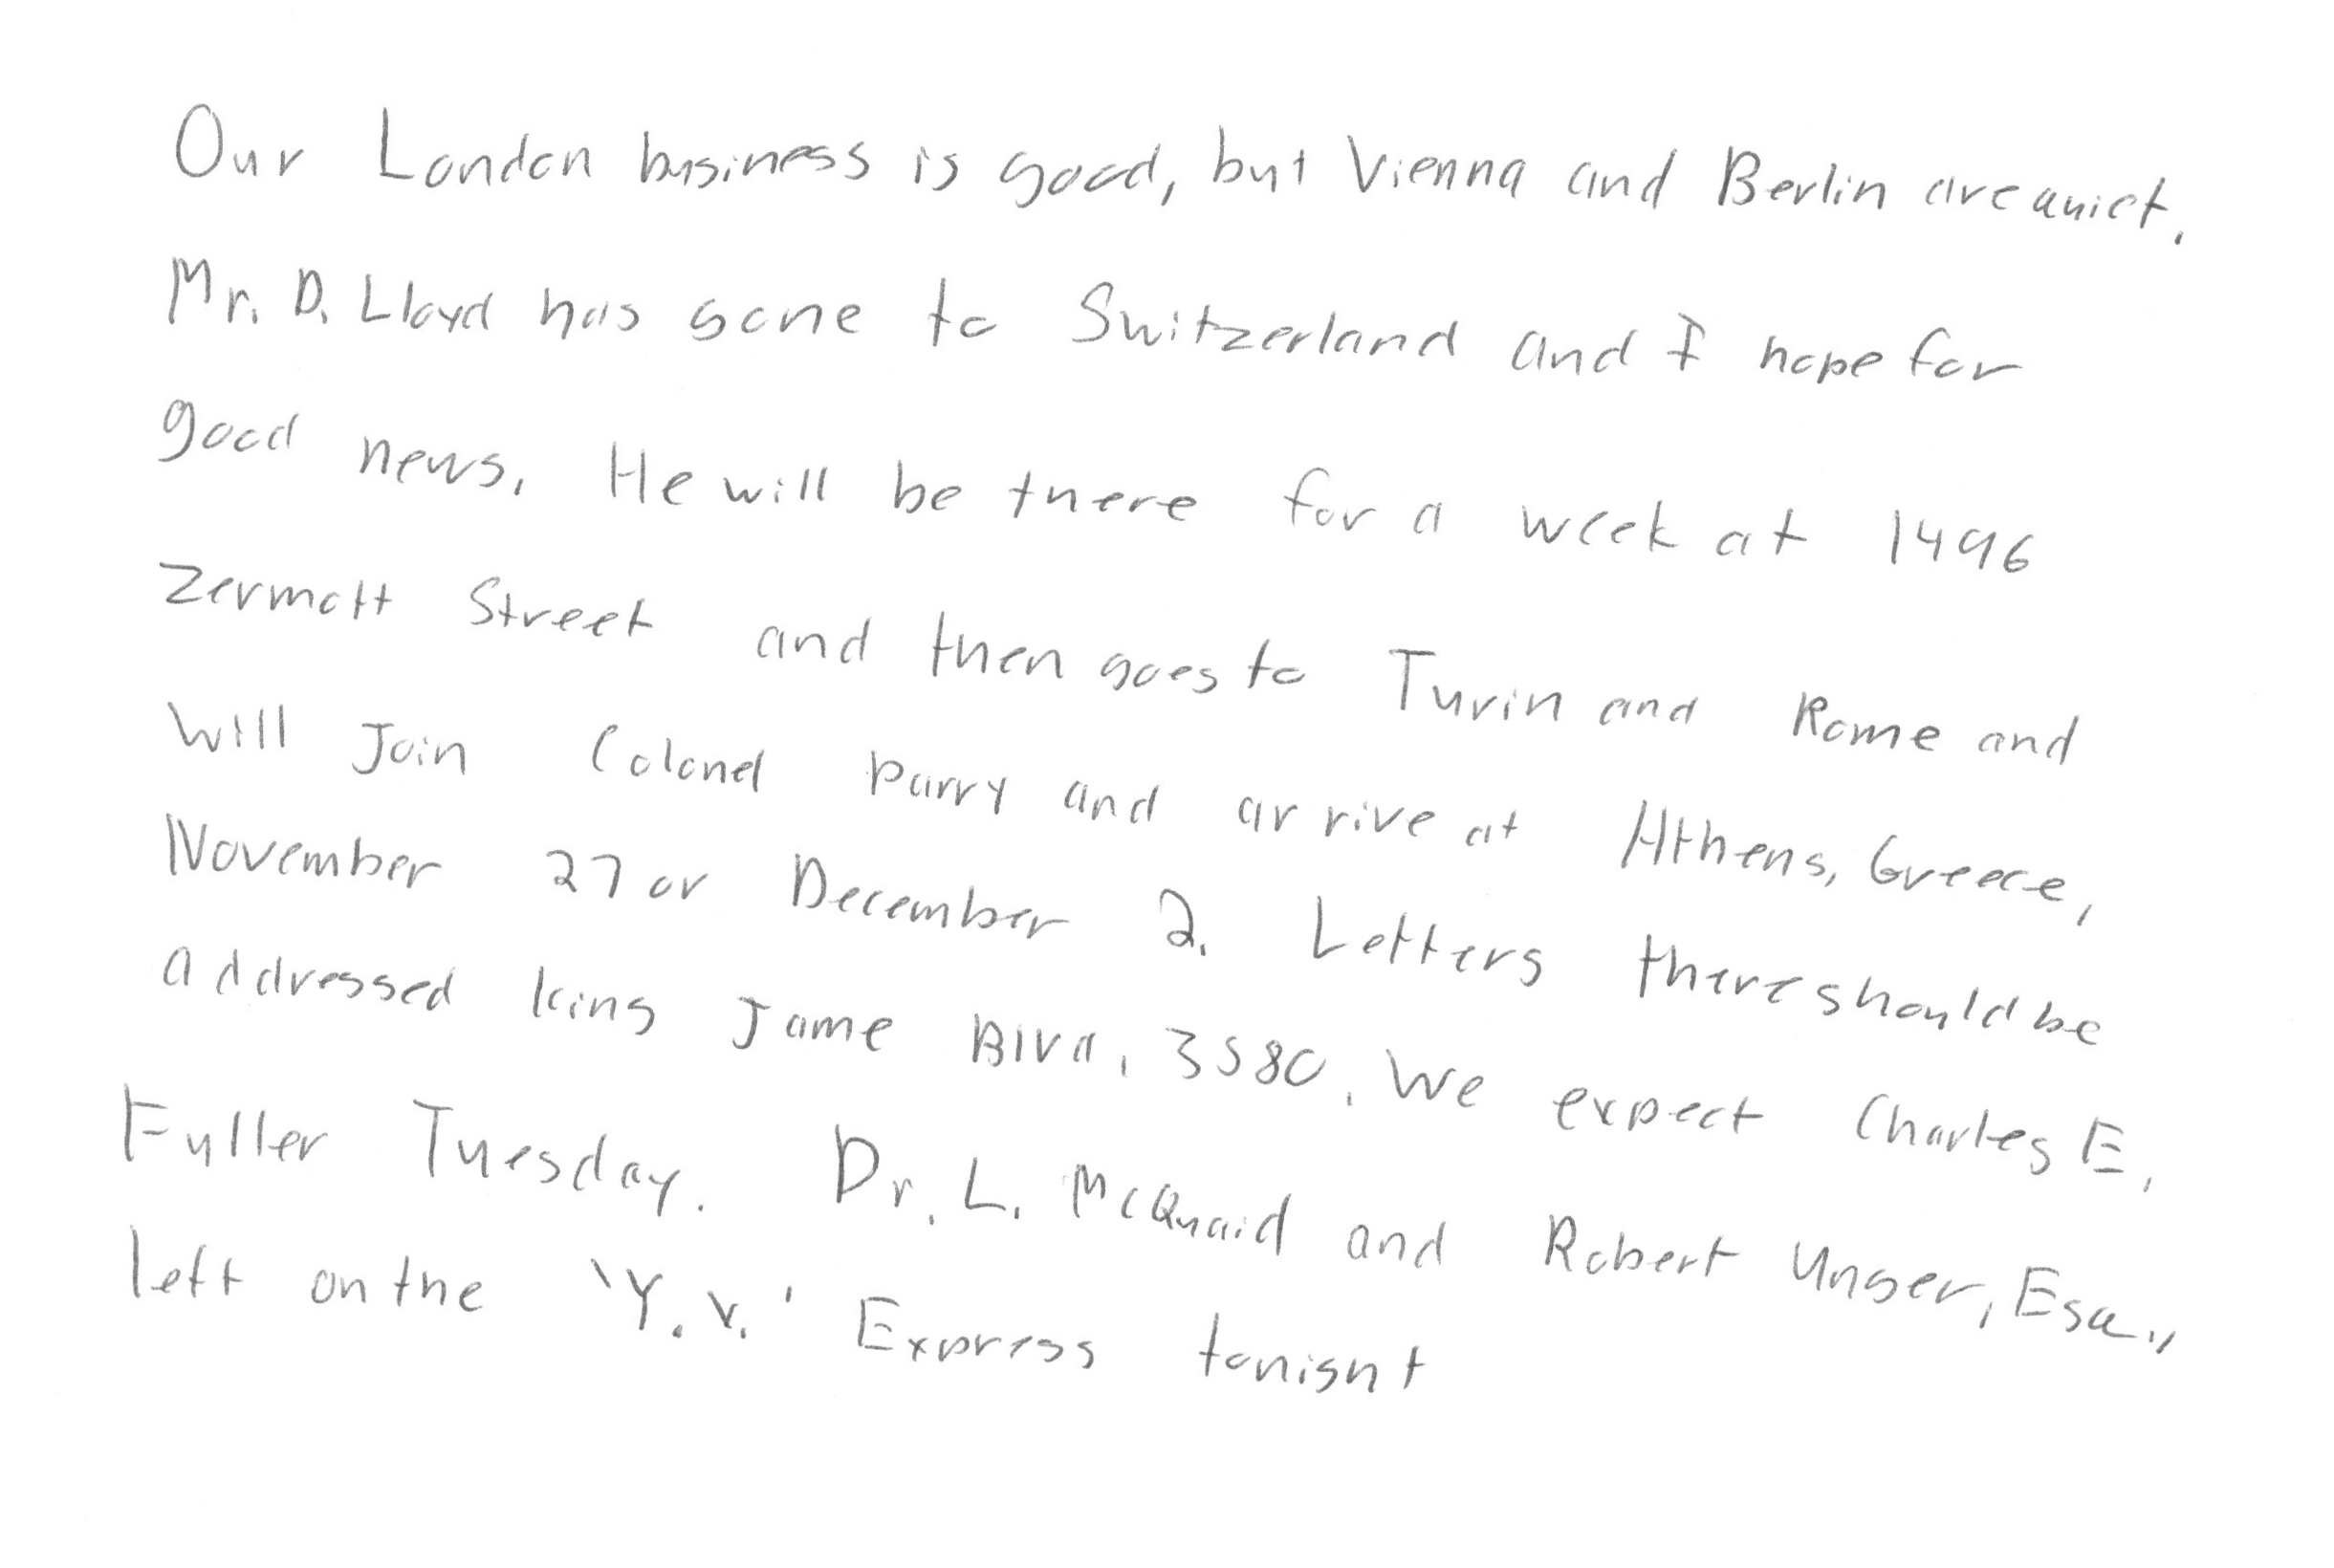 Our London business is good, but Vienna and Berlin are quiet.
Mr. D. Lloyd has gone to Switzerland and I hope for
good news. He will be there for a week at 1496
Zermatt Street and then goes to Turin and Rome and
will join Colonel Parry and arrive at Athens, Greece,
November 27 or December 2. Letters there should be
addressed King Jame Blvd, 3580. We expect Charles E.
Fuller Tuesday. Dr. L. McQuaid and Robert Unger, Esq.,
left on the 'Y.X.' Express tonight